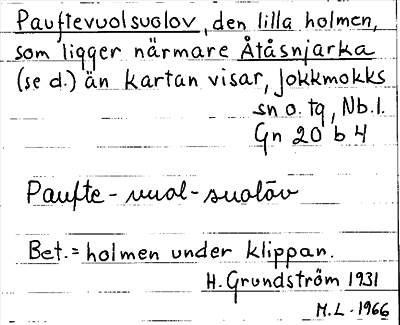 Pauftevuolsuolov, den lilla holmen,
som ligger närmare Åtåsnjarka
(se d.) än kartan visar, Jokkmokks
sn o. tg, Nb.l.
Gn 20 b 4
Paufte-vuol-suolōv
Bet. = holmen under klippan.
H. Grundström 1931
M.L. - 1966